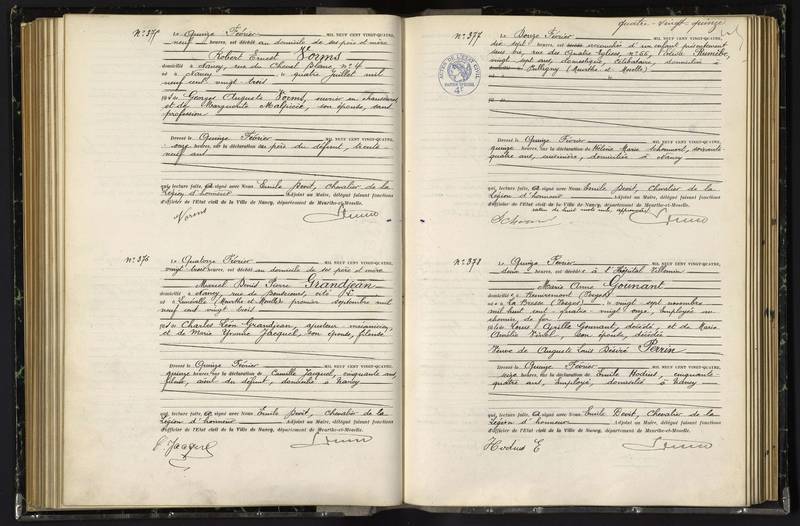 N° 375
Le Quinze Février MIL NEUF CENT VINGT-QUATRE,
neuf heures, est décédé au domicile de ses père et mère
Robert Ernest Worms
domicilié à Nancy, rue du Cheval Blanc, n° 4
né à Nancy le quatre Juillet mil
neuf cent vingt trois
fils de Georges Auguste Worms, ouvrier en chaussures
et de Marguerite, son épouse, sans
profession
Dressé le Quinze Février MIL NEUF CENT VINGT-QUATRE,
onze heures, sur la déclaration du père du défunt, trente
neuf ans
qui, lecture faite, a signé avec Nous Emile, Chevalier de la
Légion d'honneur Adjoint au Maire, délégué faisant fonctions
d'officier de l'Etat civil de la Ville de Nancy, département de Meurthe-et-Moselle.
Worms
N° 376
Le Quatorze Février MIL NEUF CENT VINGT-QUATRE,
vingt heures, est décédé au domicile de ses père et mère
Marcel Denis Pierre Grandjean
domicilié à Nancy, rue de
né à Lunéville (Meurthe et Moselle) premier septembre mil
neuf cent vingt trois
fils de Charles Léon Grandjean, ajusteur mécanicien,
et de Marie Yvonne Jacquel, son épouse, fileuse
Dressé le Quinze Février MIL NEUF CENT VINGT-QUATRE,
quinze heures, sur la déclaration de Camille Jacquel, cinquante ans,
aïeul du défunt, domicilié à Nancy
qui, lecture faite, a signé avec Nous Emile, Chevalier de la
Légion d'honneur Adjoint au Maire, délégué faisant fonctions
d'officier de l'Etat civil de la Ville de Nancy, département de Meurthe-et-Moselle.
C. Jacquel
quatre-vingt-quinze
N° 377
Le Douze Février MIL NEUF CENT VINGT-QUATRE,
dix sept heures, est accouchée d'un enfant présentement
sans vie, rue des Quatre Eglises, n° 55,
vingt sept ans, domestique, célibataire, domiciliée à
Pulligny (Meurthe et Moselle)
Dressé le Quinze Février MIL NEUF CENT VINGT-QUATRE,
quinze heures, sur la déclaration de Héloïse Marie, soixante
quatre ans, domiciliée à Nancy
qui, lecture faite, a signé avec Nous Emile, Chevalier de la
Légion d'honneur Adjoint au Maire, délégué faisant fonctions
d'officier de l'Etat civil de la Ville de Nancy, département de Meurthe-et-Moselle.
N° 378
Le Quinze Février MIL NEUF CENT VINGT-QUATRE,
heures, est décédée à l'Hôpital Villemin
Maria Anna Gounant
domiciliée à Remiremont (Vosges)
née à La Bresse (Vosges) le vingt sept novembre
mil huit cent quatre vingt onze, employée au
chemin de fer
fille de Louis Gounant, décédé, et de Marie
son épouse, décédée
Veuve de Auguste Louis Désiré Perrin
Dressé le Quinze Février MIL NEUF CENT VINGT-QUATRE,
seize heures, sur la déclaration de Emile Hodius, cinquante
quatre ans, employé, domicilié à Nancy
qui, lecture faite, a signé avec Nous Emile, Chevalier de la
Légion d'honneur Adjoint au Maire, délégué faisant fonctions
d'officier de l'Etat civil de la Ville de Nancy, département de Meurthe-et-Moselle.
Hodius E